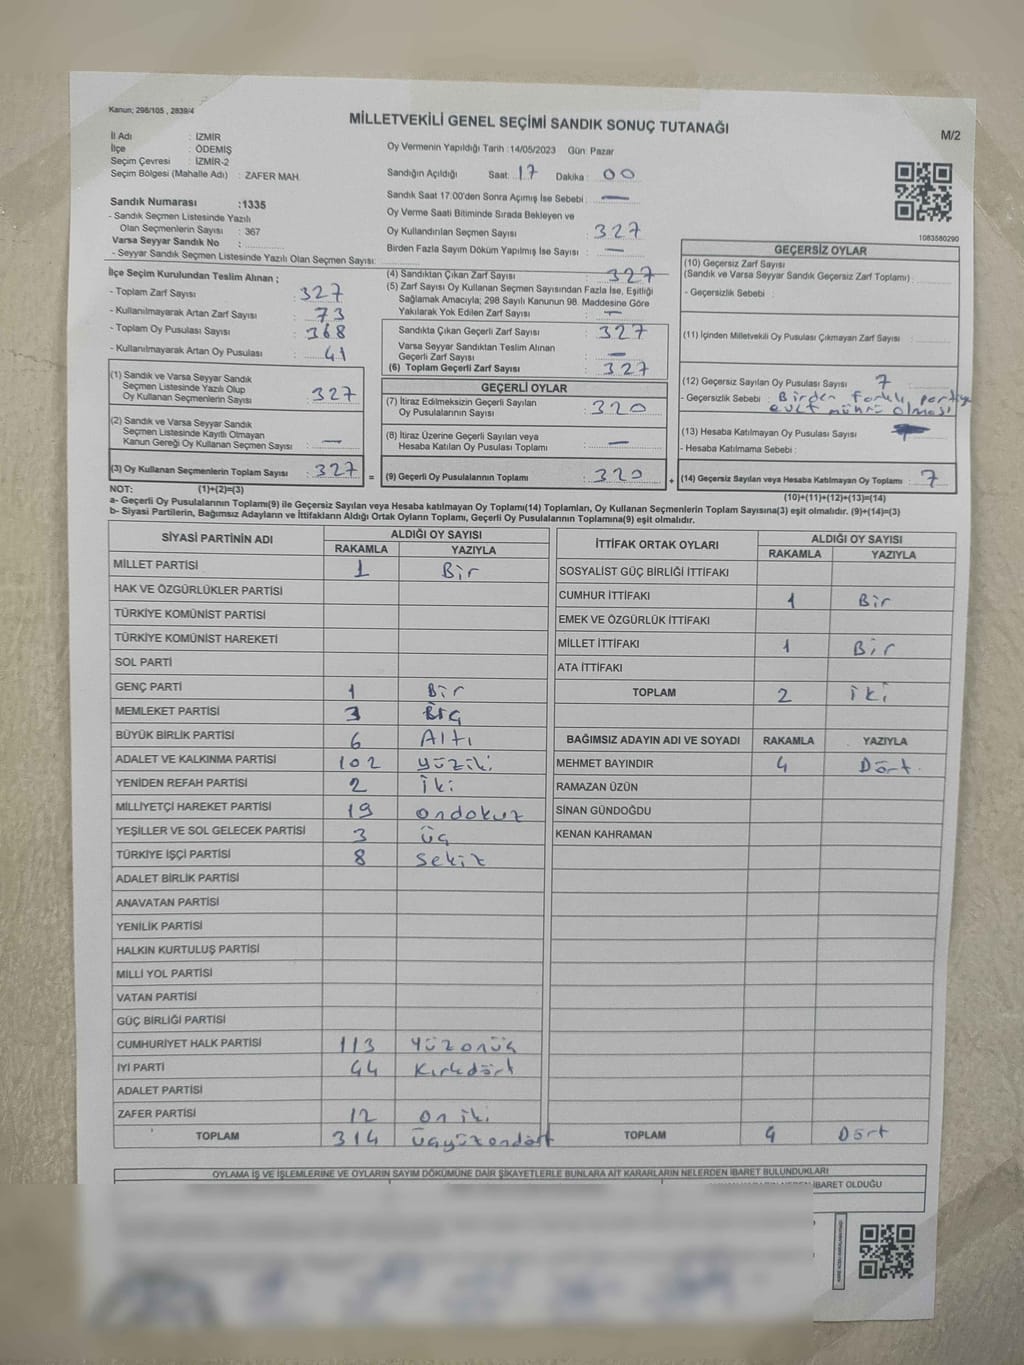 Kanun; 298/105 , 2839/4
MİLLETVEKİLİ GENEL SEÇİMİ SANDIK SONUÇ TUTANAĞI
M/2
İl Adı : İZMİR
İlçe : ÖDEMİŞ
Seçim Çevresi : İZMİR-2
Seçim Bölgesi (Mahalle Adı) : ZAFER MAH.
Oy Vermenin Yapıldığı Tarih :14/05/2023 Gün: Pazar
Sandığın Açıldığı Saat: 17 Dakika : 00
Sandık Saat 17.00'den Sonra Açımış İse Sebebi : —
Oy Verme Saati Bitiminde Sırada Bekleyen ve
Oy Kullandırılan Seçmen Sayısı : 327
Birden Fazla Sayım Döküm Yapılmış İse Sayısı : —
1083580290
Sandık Numarası :1335
- Sandık Seçmen Listesinde Yazılı
Olan Seçmenlerin Sayısı : 367
Varsa Seyyar Sandık No :
- Seyyar Sandık Seçmen Listesinde Yazılı Olan Seçmen Sayısı:
İlçe Seçim Kurulundan Teslim Alınan ;
- Toplam Zarf Sayısı : 327
- Kullanılmayarak Artan Zarf Sayısı : 73
- Toplam Oy Pusulası Sayısı : 368
- Kullanılmayarak Artan Oy Pusulası : 41
(1) Sandık ve Varsa Seyyar Sandık
Seçmen Listesinde Yazılı Olup
Oy Kullanan Seçmenlerin Sayısı : 327
(2) Sandık ve Varsa Seyyar Sandık
Seçmen Listesinde Kayıtlı Olmayan
Kanun Gereği Oy Kullanan Seçmen Sayısı : —
(3) Oy Kullanan Seçmenlerin Toplam Sayısı : 327 =
(4) Sandıktan Çıkan Zarf Sayısı : 327
(5) Zarf Sayısı Oy Kullanan Seçmen Sayısından Fazla İse, Eşitliği
Sağlamak Amacıyla; 298 Sayılı Kanunun 98. Maddesine Göre
Yakılarak Yok Edilen Zarf Sayısı : —
Sandıkta Çıkan Geçerli Zarf Sayısı : 327
Varsa Seyyar Sandıktan Teslim Alınan
Geçerli Zarf Sayısı : —
(6) Toplam Geçerli Zarf Sayısı : 327
GEÇERLİ OYLAR
(7) İtiraz Edilmeksizin Geçerli Sayılan
Oy Pusulalarının Sayısı : 320
(8) İtiraz Üzerine Geçerli Sayılan veya
Hesaba Katılan Oy Pusulaları Toplamı : —
(9) Geçerli Oy Pusulalarının Toplamı : 320 +
GEÇERSİZ OYLAR
(10) Geçersiz Zarf Sayısı
(Sandık ve Varsa Seyyar Sandık Geçersiz Zarf Toplamı) :
- Geçersizlik Sebebi :
(11) İçinden Milletvekili Oy Pusulası Çıkmayan Zarf Sayısı :
(12) Geçersiz Sayılan Oy Pusulası Sayısı : 7
- Geçersizlik Sebebi : Birden farklı partiye
evet mührü olması
(13) Hesaba Katılmayan Oy Pusulası Sayısı :
- Hesaba Katılmama Sebebi :
(14) Geçersiz Sayılan veya Hesaba Katılmayan Oy Toplamı : 7
NOT: (1)+(2)=(3)
(10)+(11)+(12)+(13)=(14)
a- Geçerli Oy Pusulalarının Toplamı(9) ile Geçersiz Sayılan veya Hesaba katılmayan Oy Toplamı(14) Toplamları, Oy Kullanan Seçmenlerin Toplam Sayısına(3) eşit olmalıdır. (9)+(14)=(3)
b- Siyasi Partilerin, Bağımsız Adayların ve İttifakların Aldığı Ortak Oyların Toplamı, Geçerli Oy Pusulalarının Toplamına(9) eşit olmalıdır.
SİYASİ PARTİNİN ADI ALDIĞI OY SAYISI
RAKAMLA YAZIYLA
MİLLET PARTİSİ 1 Bir
HAK VE ÖZGÜRLÜKLER PARTİSİ
TÜRKİYE KOMÜNİST PARTİSİ
TÜRKİYE KOMÜNİST HAREKETİ
SOL PARTİ
GENÇ PARTİ 1 Bir
MEMLEKET PARTİSİ 3
BÜYÜK BİRLİK PARTİSİ 6 Altı
ADALET VE KALKINMA PARTİSİ 102 yüziki
YENİDEN REFAH PARTİSİ 2 iki
MİLLİYETÇİ HAREKET PARTİSİ 19 ondokuz
YEŞİLLER VE SOL GELECEK PARTİSİ 3 üç
TÜRKİYE İŞÇİ PARTİSİ 8 sekiz
ADALET BİRLİK PARTİSİ
ANAVATAN PARTİSİ
YENİLİK PARTİSİ
HALKIN KURTULUŞ PARTİSİ
MİLLİ YOL PARTİSİ
VATAN PARTİSİ
GÜÇ BİRLİĞİ PARTİSİ
CUMHURİYET HALK PARTİSİ 113 Yüzonüç
İYİ PARTİ 44 Kırkdört
ADALET PARTİSİ
ZAFER PARTİSİ 12 on iki
TOPLAM 314 üçyüzondört
İTTİFAK ORTAK OYLARI ALDIĞI OY SAYISI
RAKAMLA YAZIYLA
SOSYALİST GÜÇ BİRLİĞİ İTTİFAKI
CUMHUR İTTİFAKI 1 Bir
EMEK VE ÖZGÜRLÜK İTTİFAKI
MİLLET İTTİFAKI 1 Bir
ATA İTTİFAKI
TOPLAM 2 iki
BAĞIMSIZ ADAYIN ADI VE SOYADI RAKAMLA YAZIYLA
MEHMET BAYINDIR 4 Dört.
RAMAZAN ÜZÜN
SİNAN GÜNDOĞDU
KENAN KAHRAMAN
TOPLAM 4 Dört
OYLAMA İŞ VE İŞLEMLERİNE VE OYLARIN SAYIM DÖKÜMÜNE DAİR ŞİKAYETLERLE BUNLARA AİT KARARLARIN NELERDEN İBARET BULUNDUKLARI
İBARET OLDUĞU